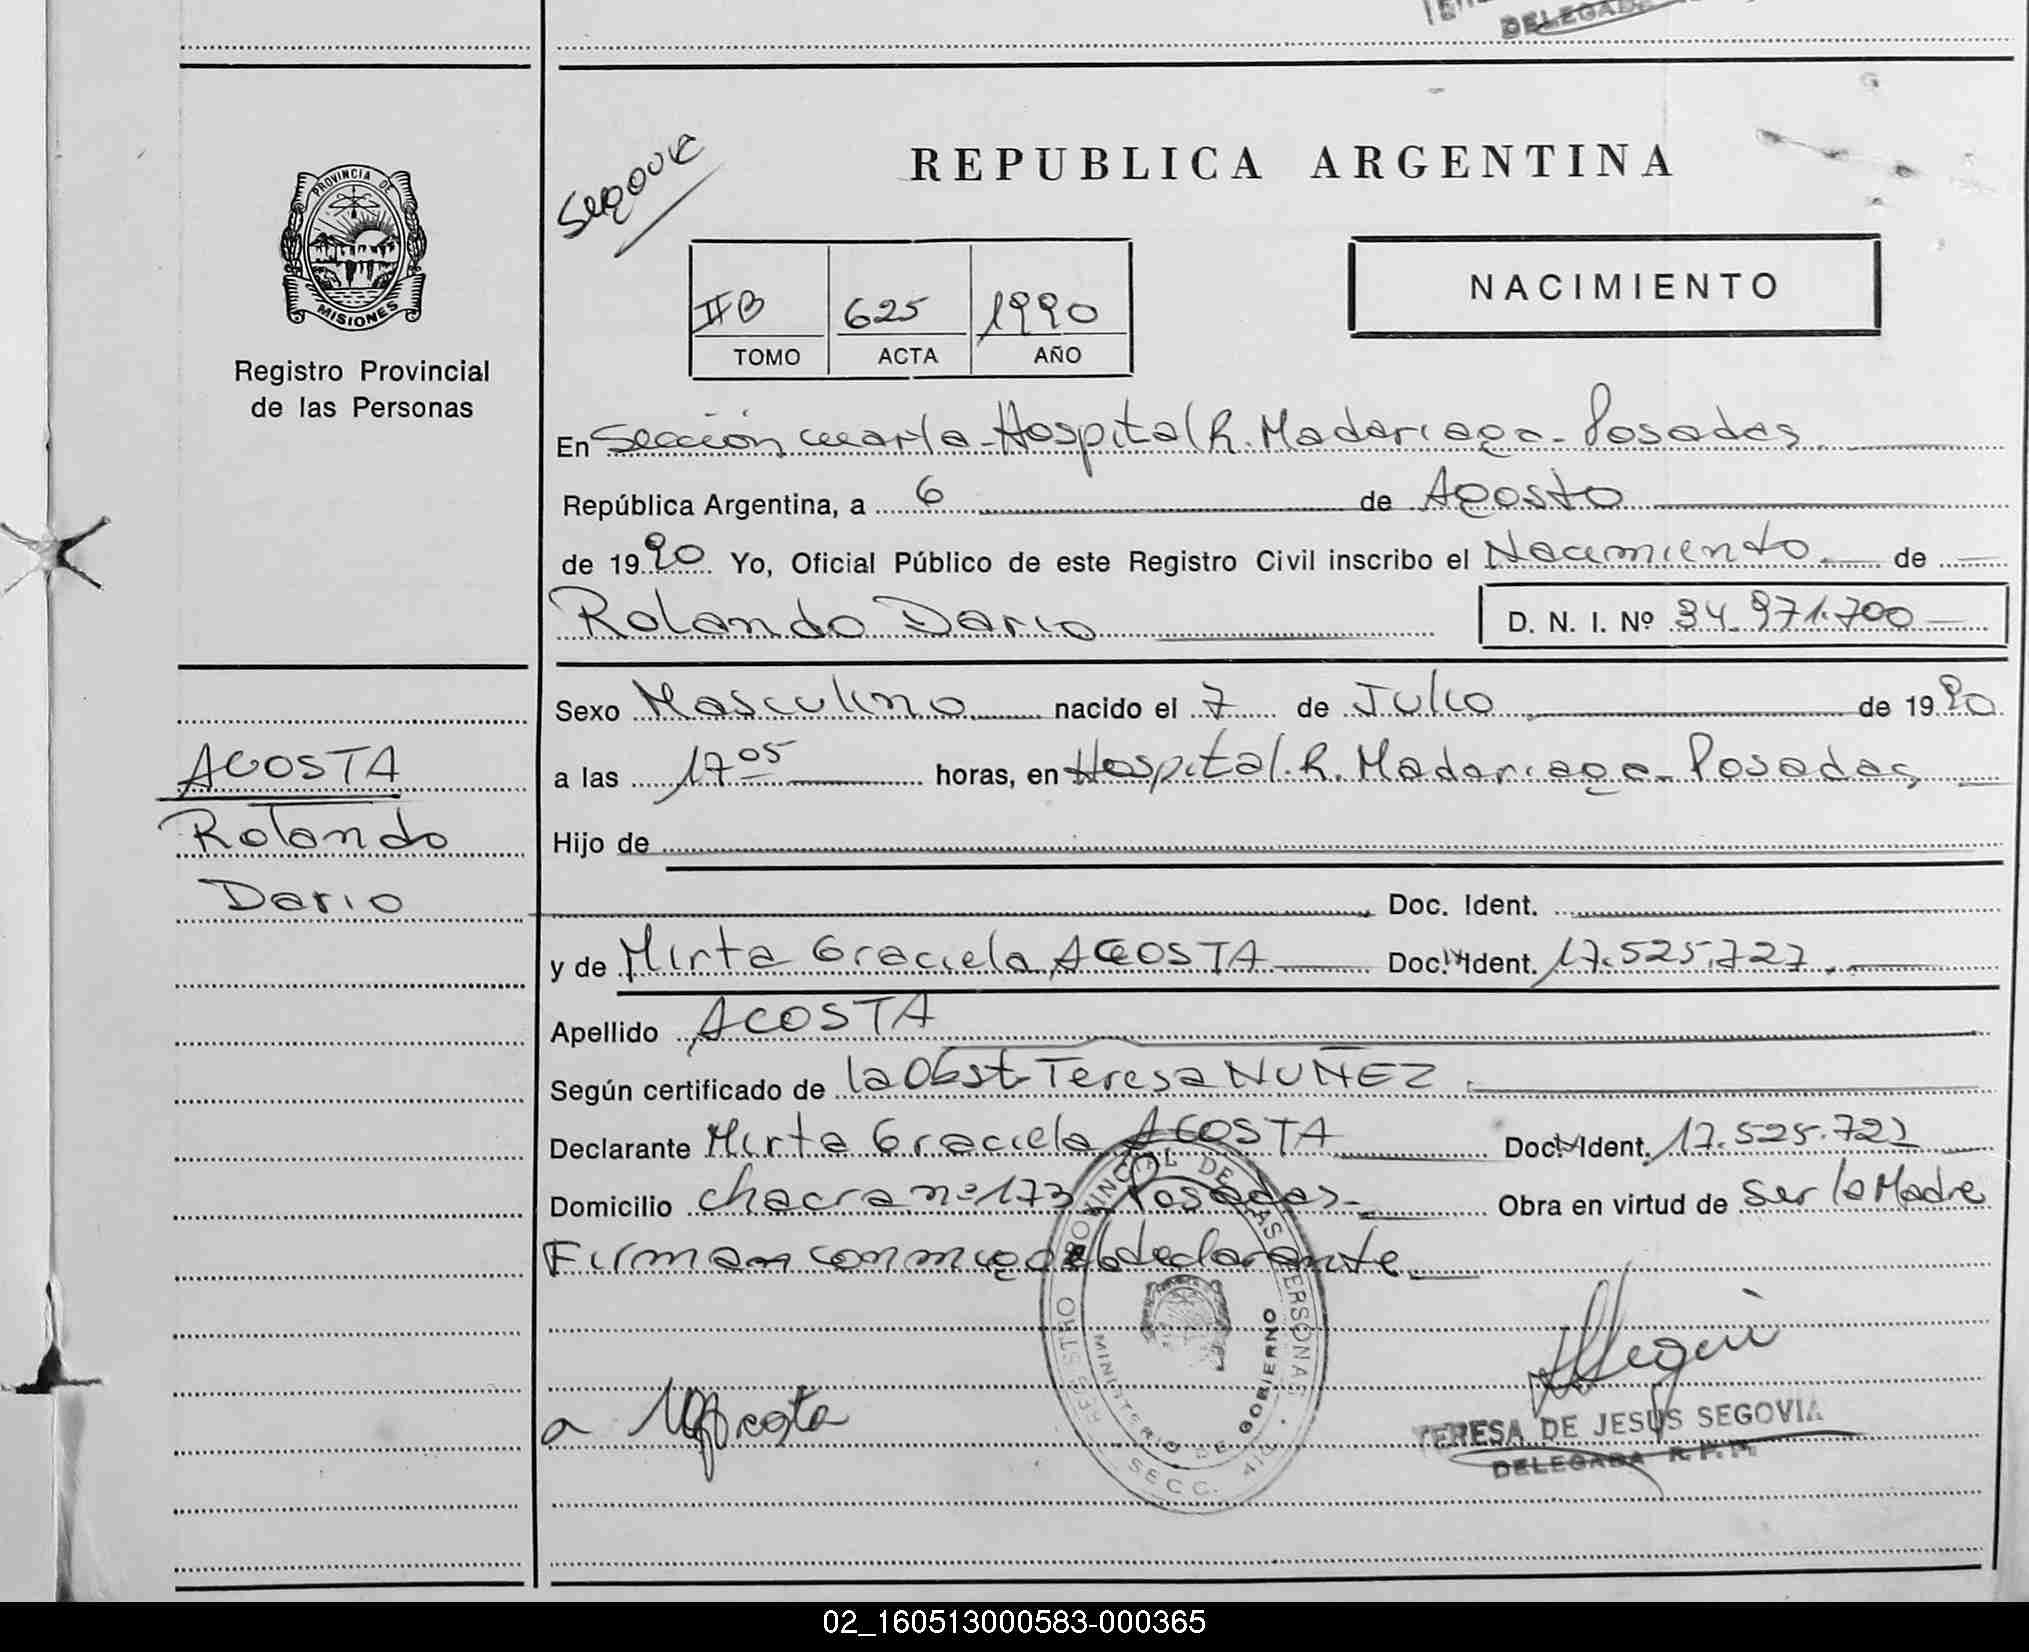 DELEGADA
PROVINCIA DE
MISIONES
Registro Provincial
de las Personas
REPUBLICA ARGENTINA
NACIMIENTO
IIB 625 1990
TOMO ACTA AÑO
En Sección cuarta - Hospital R. Madariaga - Posadas
República Argentina, a 6 de Agosto
de 1990 Yo, Oficial Público de este Registro Civil inscribo el Nacimiento de
Rolando Dario D. N. I. Nº 34.971.700
Sexo Masculino nacido el 7 de Julio de 1990
a las 17 05 horas, en Hospital R. Madariaga - Posadas
ACOSTA
Rolando
Dario
Hijo de
Doc. Ident.
y de Mirta Graciela ACOSTA Doc. Ident. 17.525.727
Apellido ACOSTA
Según certificado de la Obst. Teresa NUÑEZ
Declarante Mirta Graciela ACOSTA Doc. Ident. 17.525.727
Domicilio chacra nº 173 Posadas - Obra en virtud de ser la Madre
Firman conmigo el declarante
REGISTRO PROVINCIAL DE LAS PERSONAS
MINISTERIO DE GOBIERNO
SECC. 4
TERESA DE JESUS SEGOVIA
DELEGADA R. P. P.
02_160513000583-000365